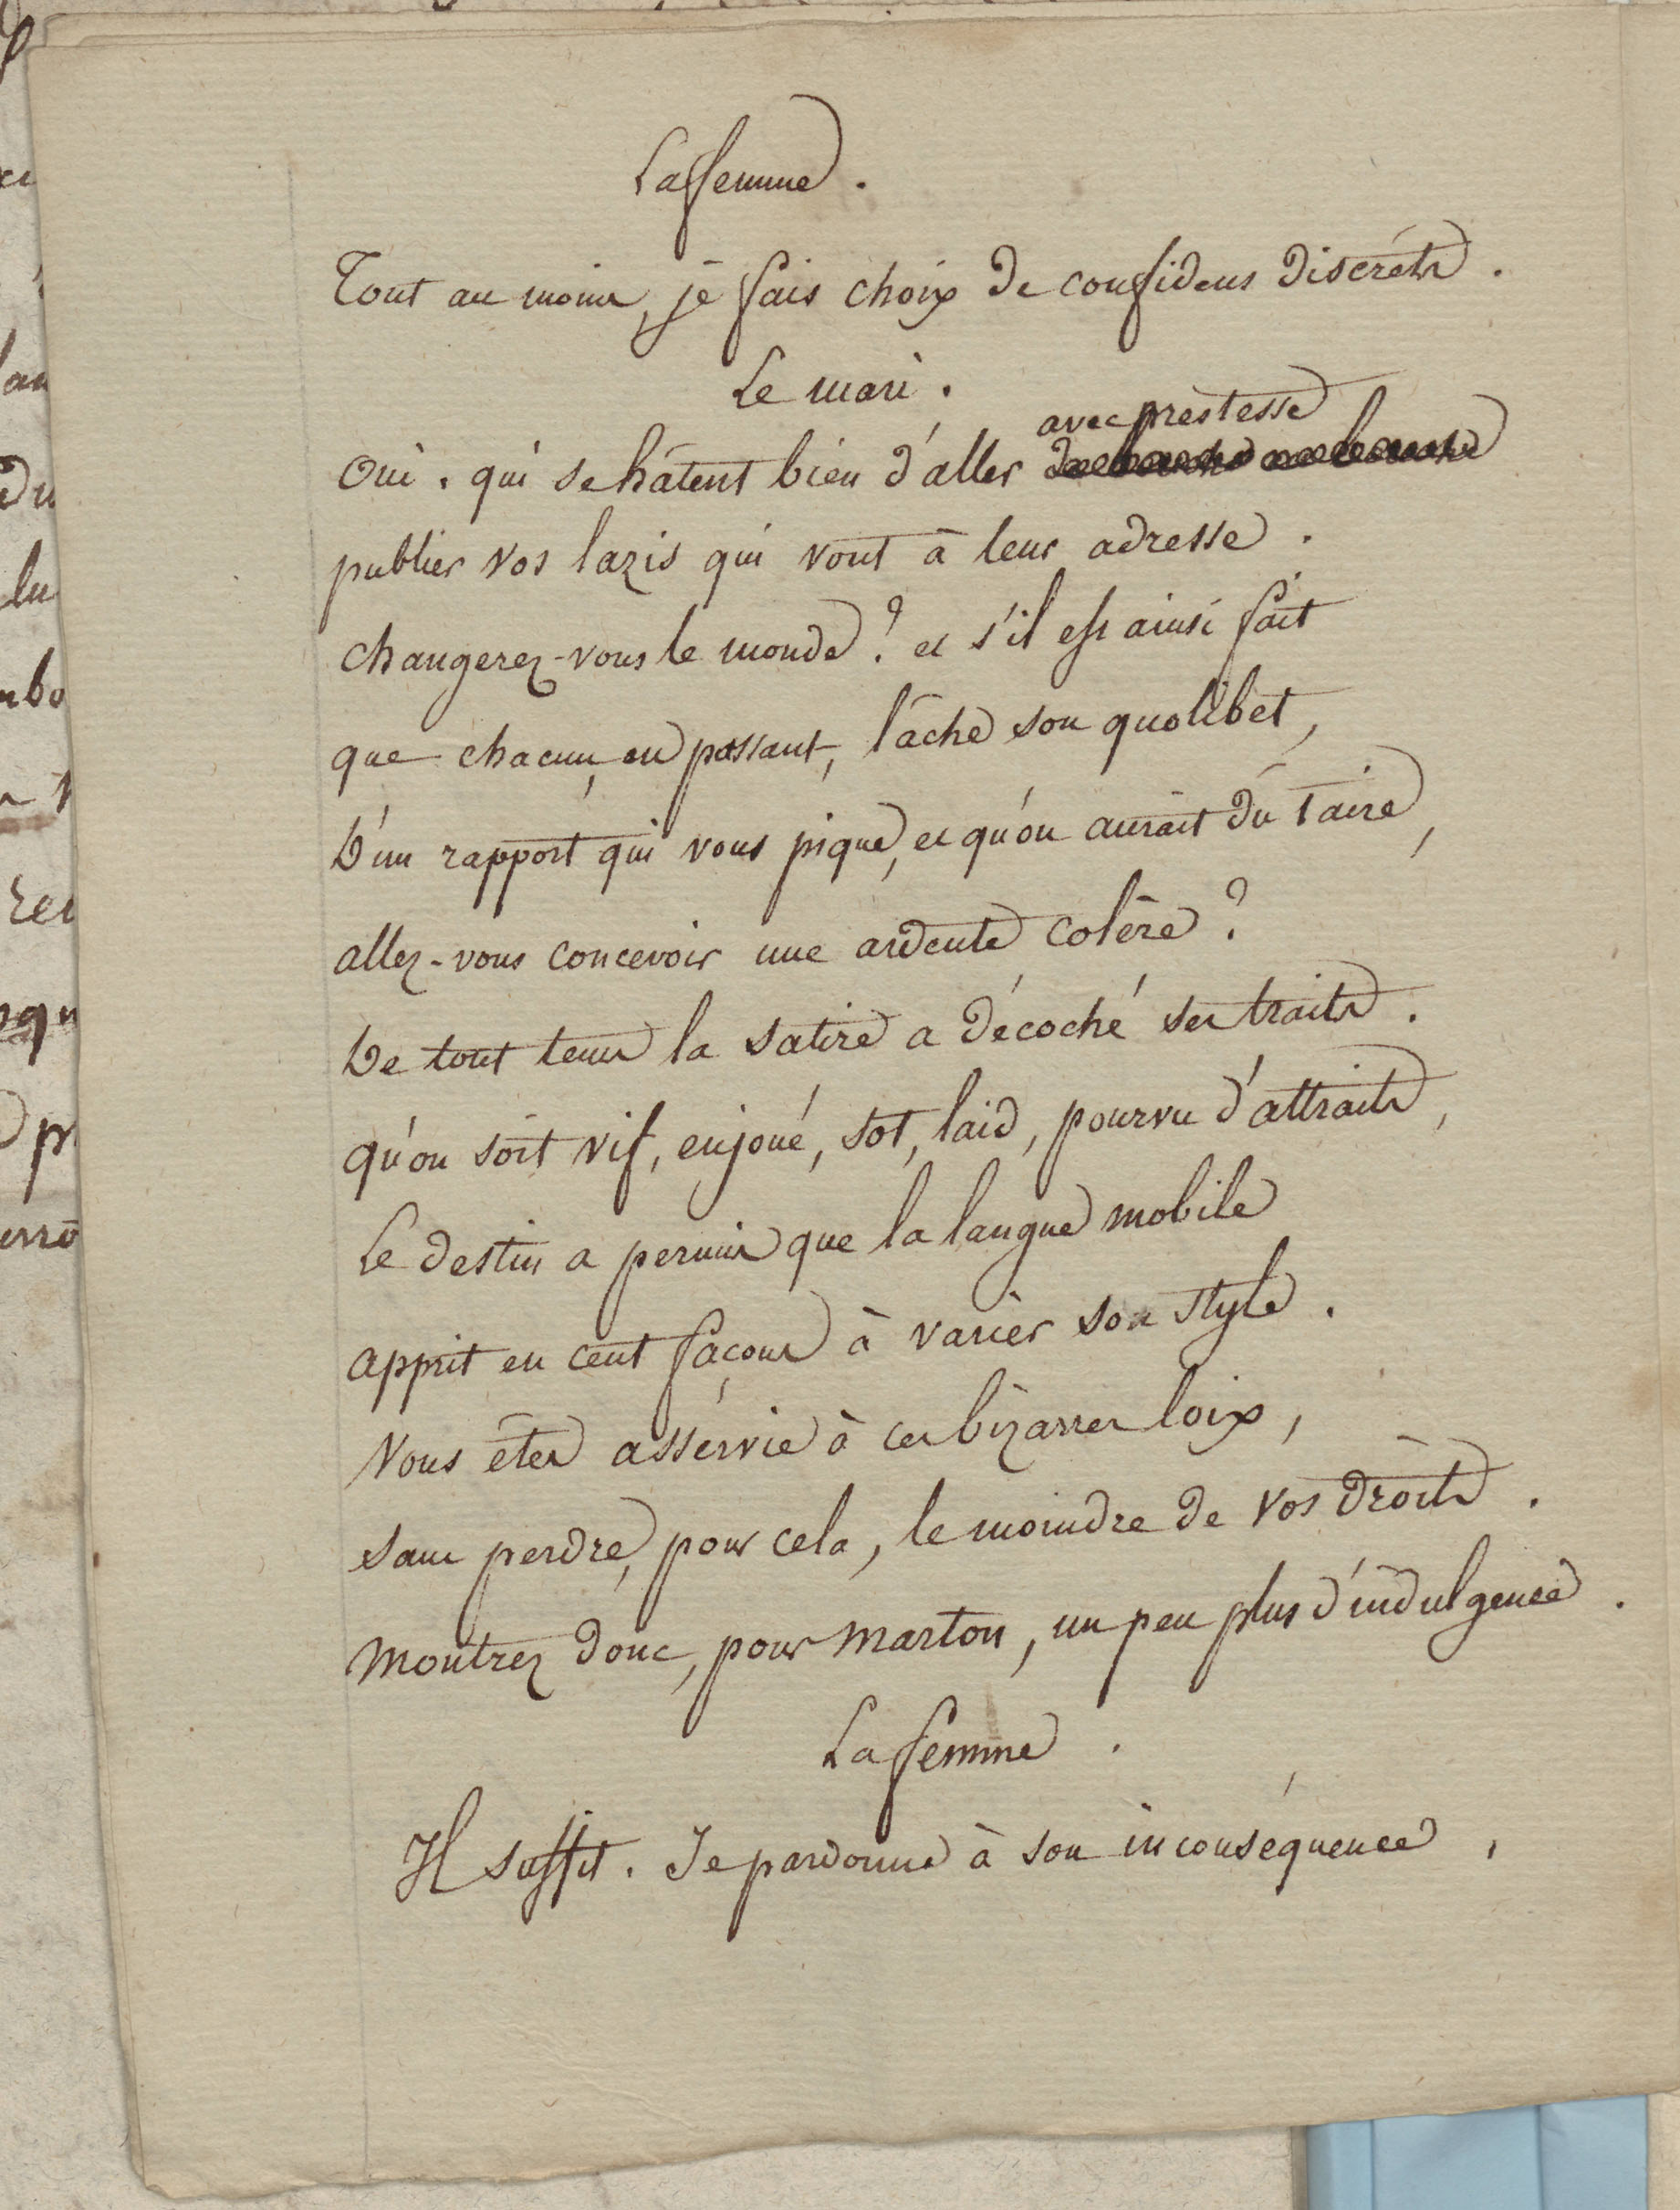 La femme.
Tout au moins, je fais choix de confidens discrèts.
Le mari.
avec prestesse
oui. qui se hâtent bien d'aller
publier vos lazis qui vont à leur adresse.
changerez-vous le monde? et s'il est ainsi fait
que chacun, en passant, lâche son quolibet,
D'un rapport qui vous pique, et qu'on aurait dû taire,
allez-vous concevoir une ardente colère?
De tout tems la satire a décoché ses traits.
qu'on soit vif, enjoué, sot, laid, pourvu d'attraits,
Le destin a permis que la langue mobile
apprit en cent façons à varier son style.
Vous êtes asservie à ces bizarres loix,
sans perdre, pour cela, le moindre de vos droits.
montrez donc, pour marton, un peu plus d'indulgence.
La femme.
Il suffit. Je pardonne à son inconséquence,